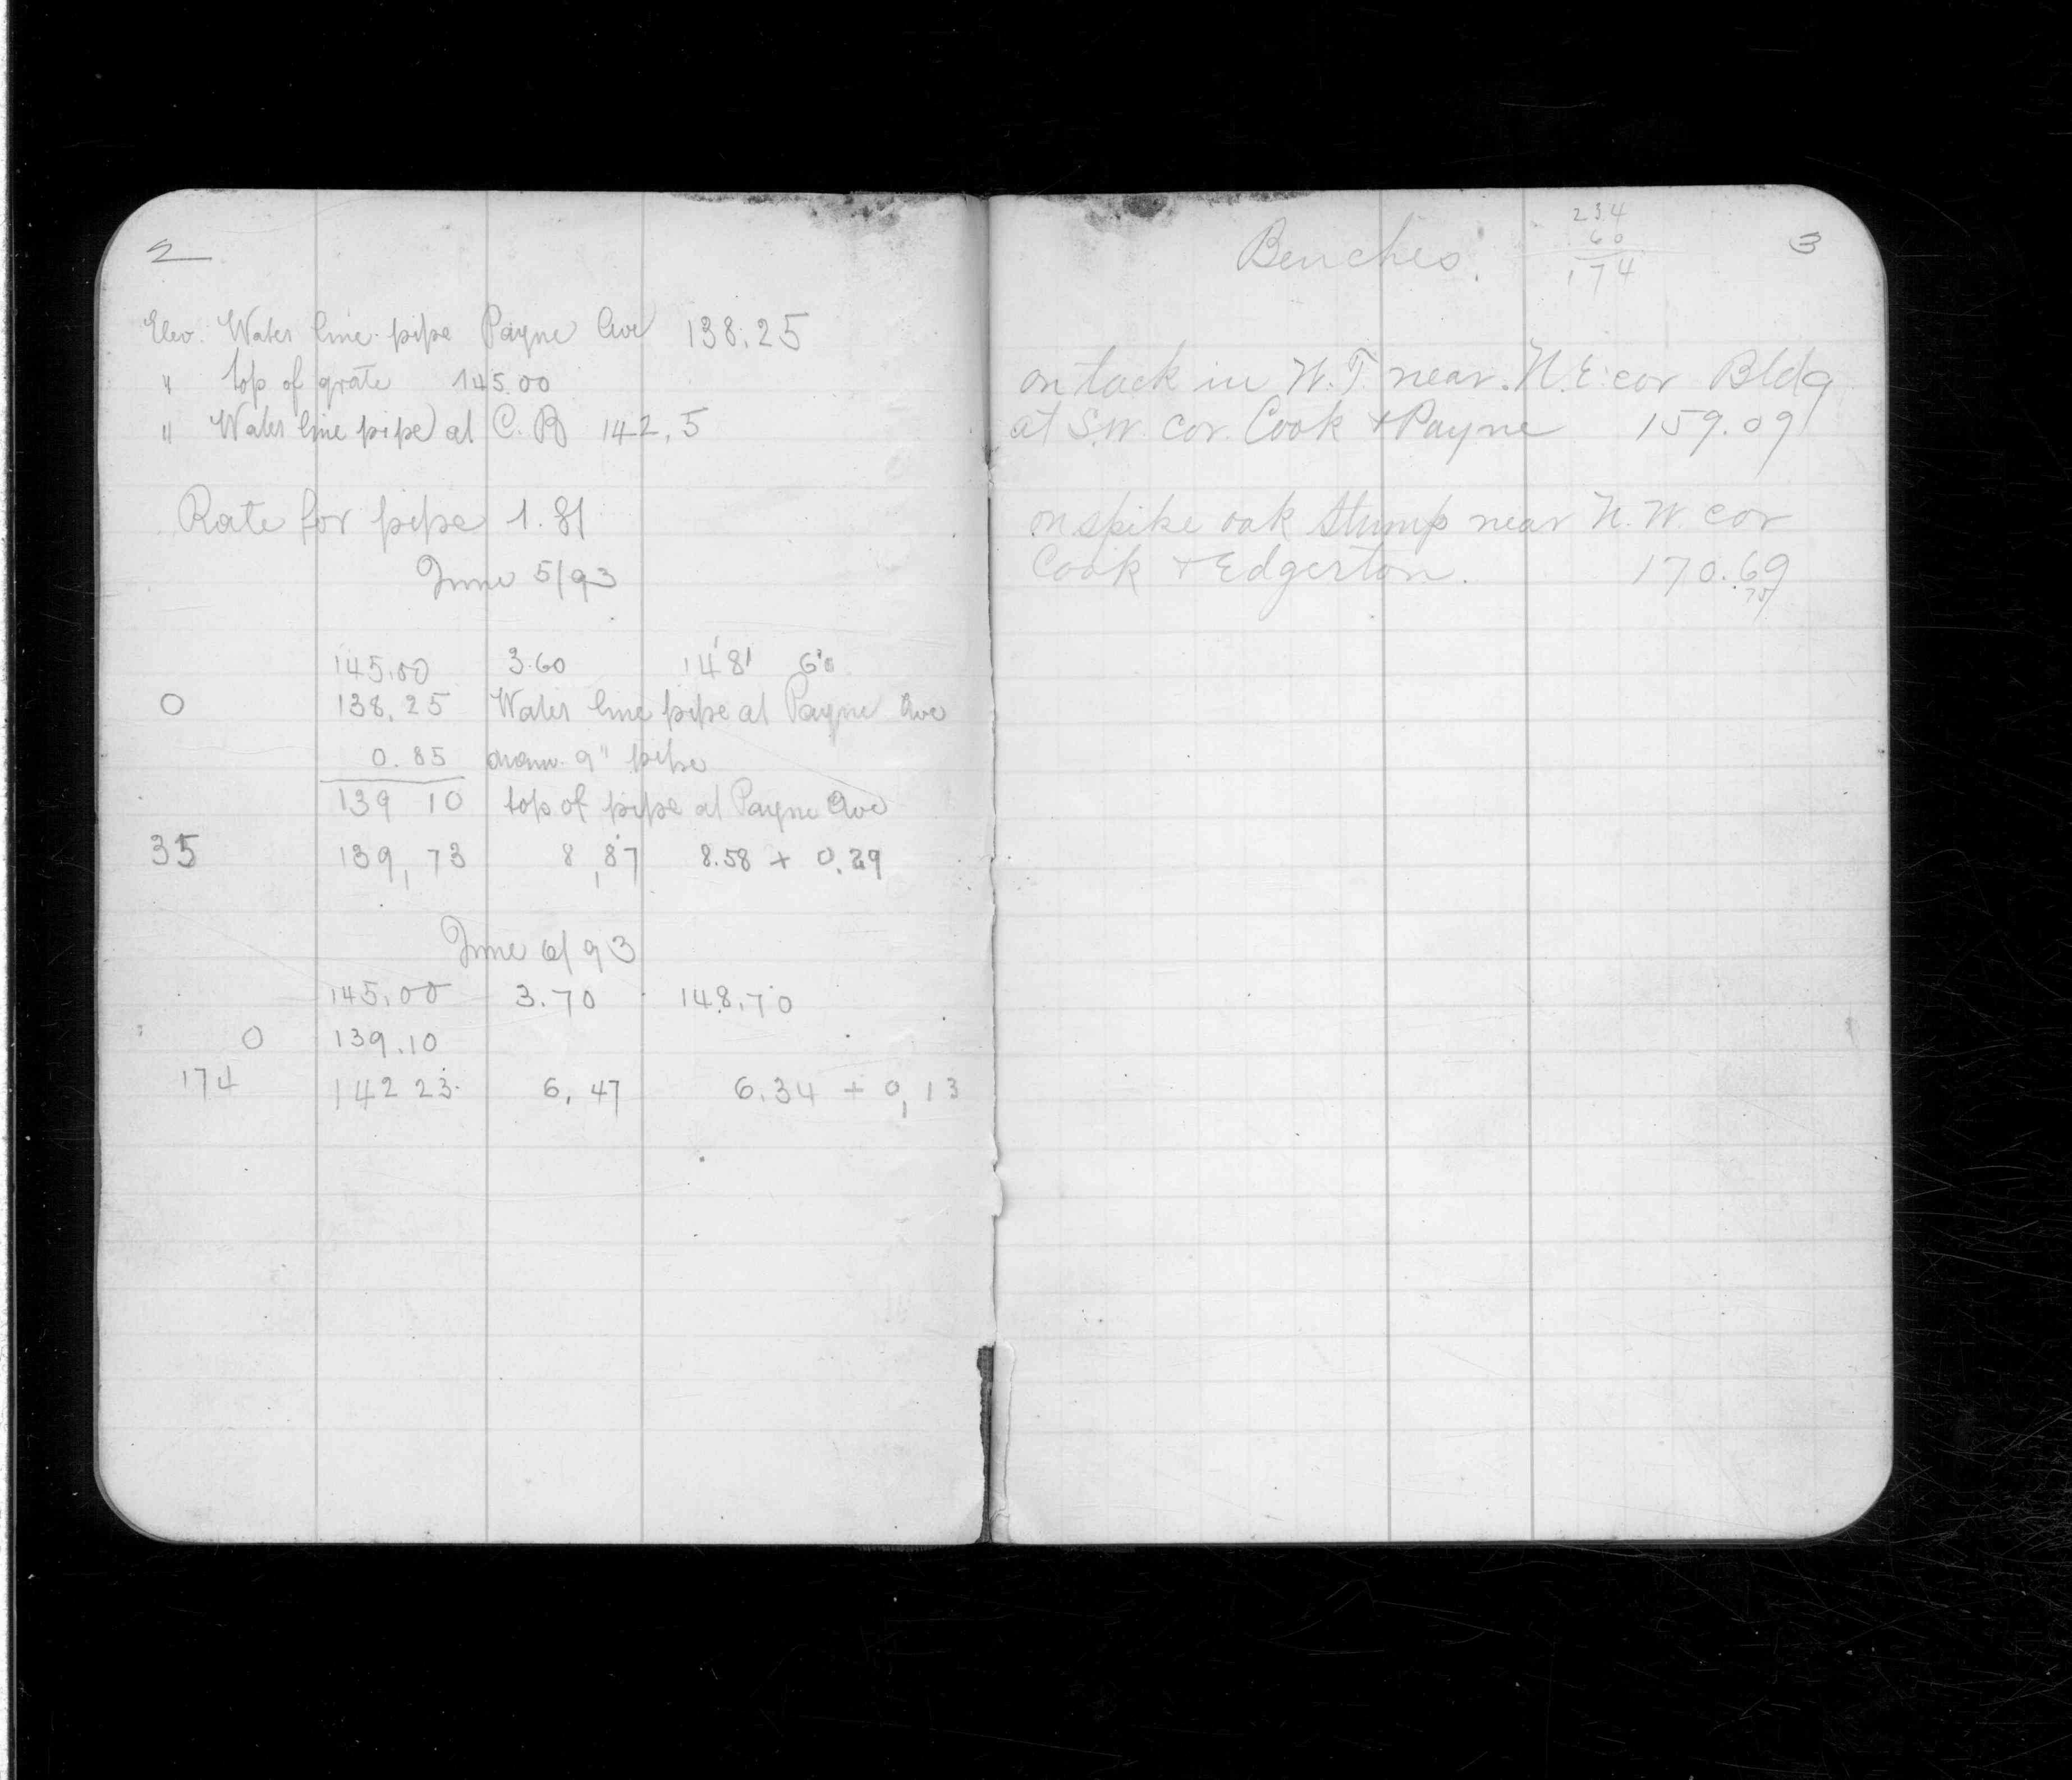 2
Elev. Water line pipe Payne Ave 138.25
" top of grate 145.00
" Water line pipe at C. B 142.5
Rate for pipe 1.81
June 5/93
145.00 3.60 148 60
0 138.25 Water line pipe at Payne Ave
0.85 diam. 9" pipe
139 10 top of pipe at Payne Ave
35 139,73 8,87 8.58 + 0.29
June 6/93
145.00 3.70 148.70
0 139.10
174 142 23 6,47 6.34 + 0,13
3
Benches.
234
60
174
on tack in W.T. near N.E. cor Bldg
at S.W. cor. Cook + Payne 159.09
on spike oak stump near N.W. cor
Cook + Edgerton. 170.69
75